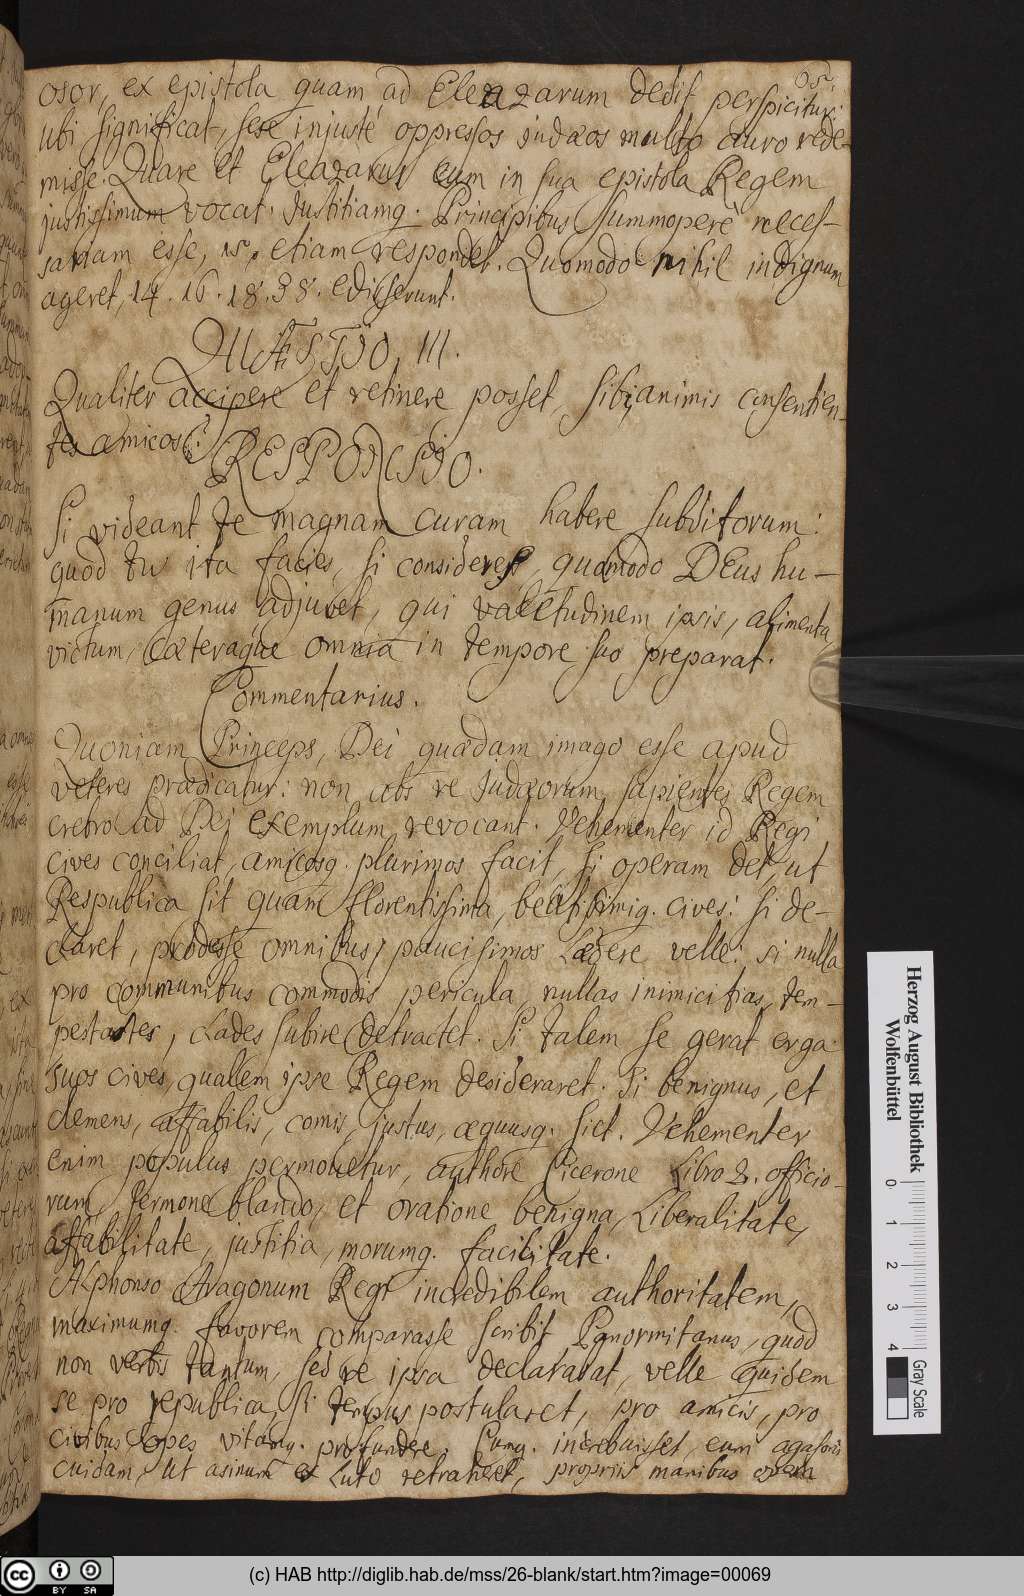 65.
osor, ex epistola quam ad Eleazarum dedit perspicitur:
ubi significat, sese injustè oppressos judæos multo auro rede-
misse. Quare et Eleazarus eum in sua epistola Regem
justissimum vocat. Justitiamq. Principibus summoperè neces-
sariam esse, 15. etiam respondet. Quomodo nihil indignum
ageret, 14. 16. 18. 38. edisserunt.
QUÆSTIO, III.
Qualiter accipere et retinere posset, sibi animis consentien-
tes amicos?
RESPONSIO.
Si videant te magnam curam habere subditorum:
quod tu ita facies, si consideres, quomodo DEus hu-
manum genus adjuvet, qui valetudinem ipsis, alimenta,
victum, cæteraque omnia in tempore suo preparat.
Commentarius.
Quoniam Princeps, Dei quædam imago esse apud
veteres prædicatur: non abs re Judæorum sapientes Regem
crebro ad Dei exemplum revocant. Vehementer id Regi
cives conciliat, amicosq. plurimos facit, si operam det, ut
Respublica sit quam florentissima, beatissimiq. cives: si de-
claret, prodesse omnibus, paucissimos lædere velle: si nulla
pro communibus commodis pericula, nullas inimicitias, tem-
pestates, clades subire detractet. Si talem se gerat erga
suos cives, qualem ipse Regem desideraret. Si benignus, et
clemens, affabilis, comis, justus, æquusq. siet. Vehementer
enim populus permovetur, authore Cicerone Libro 2. officio-
rum, sermone blando, et oratione benigna, Liberalitate,
affabilitate, justitia, morumq. facilitate.
Alphonso Aragonum Regi incredibilem authoritatem,
maximumq. favorem comparasse scribit Panormitanus, quod
non verbis tantum, sed re ipsa declararat, velle quidem
se pro republica, si tempus postularet, pro amicis, pro
civibus opes vitamq. profundere. Cumq. increbuisset, eum agasoni
cuidam, ut asinum ex luto retraheret, propriis manibus opem
Herzog August Bibliothek
Wolfenbüttel
0 1 2 3 4
Gray Scale
CC BY SA
(c) HAB http://diglib.hab.de/mss/26-blank/start.htm?image=00069